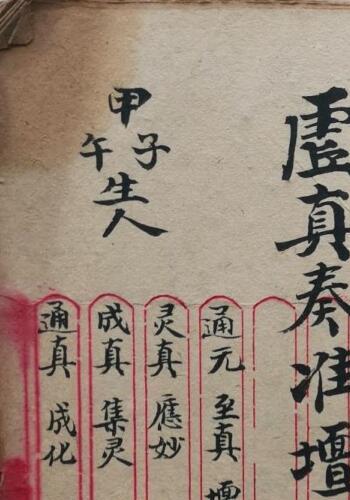 虛真奏准壇
甲子
午
生人
通元 至真 壇
灵真 應妙
成真 集灵
通真 成化